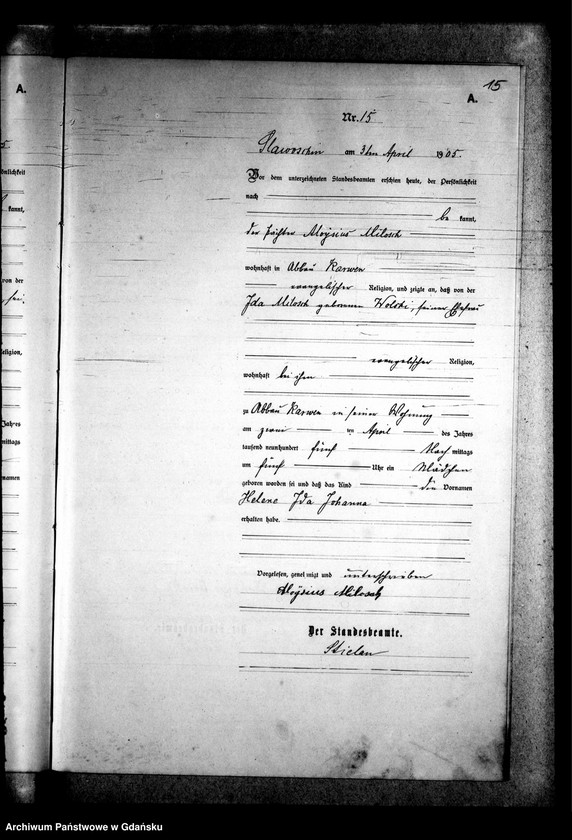 A.
15
A.
Nr. 15
Slawoschin am 3ten April 1905.
Vor dem unterzeichneten Standesbeamten erschien heute, der Persönlichkeit
nach
be kannt,
der Pächter Aloysius Milosch
wohnhaft in Abbau Karwen
evangelischer Religion, und zeigte an, daß von der
Ida Milosch geborenen Wolski, seiner Ehefrau
evangelischer Religion,
wohnhaft bei ihm
zu Abbau Karwen in seiner Wohnung
am zwei ten April des Jahres
tausend neunhundert fünf Nach mittags
um fünf Uhr ein Mädchen
geboren worden sei und daß das Kind die Vornamen
Helene Ida Johanna
erhalten habe.
Vorgelesen, genehmigt und unterschrieben
Aloysius Milosch
Der Standesbeamte.
Archiwum Państwowe w Gdańsku